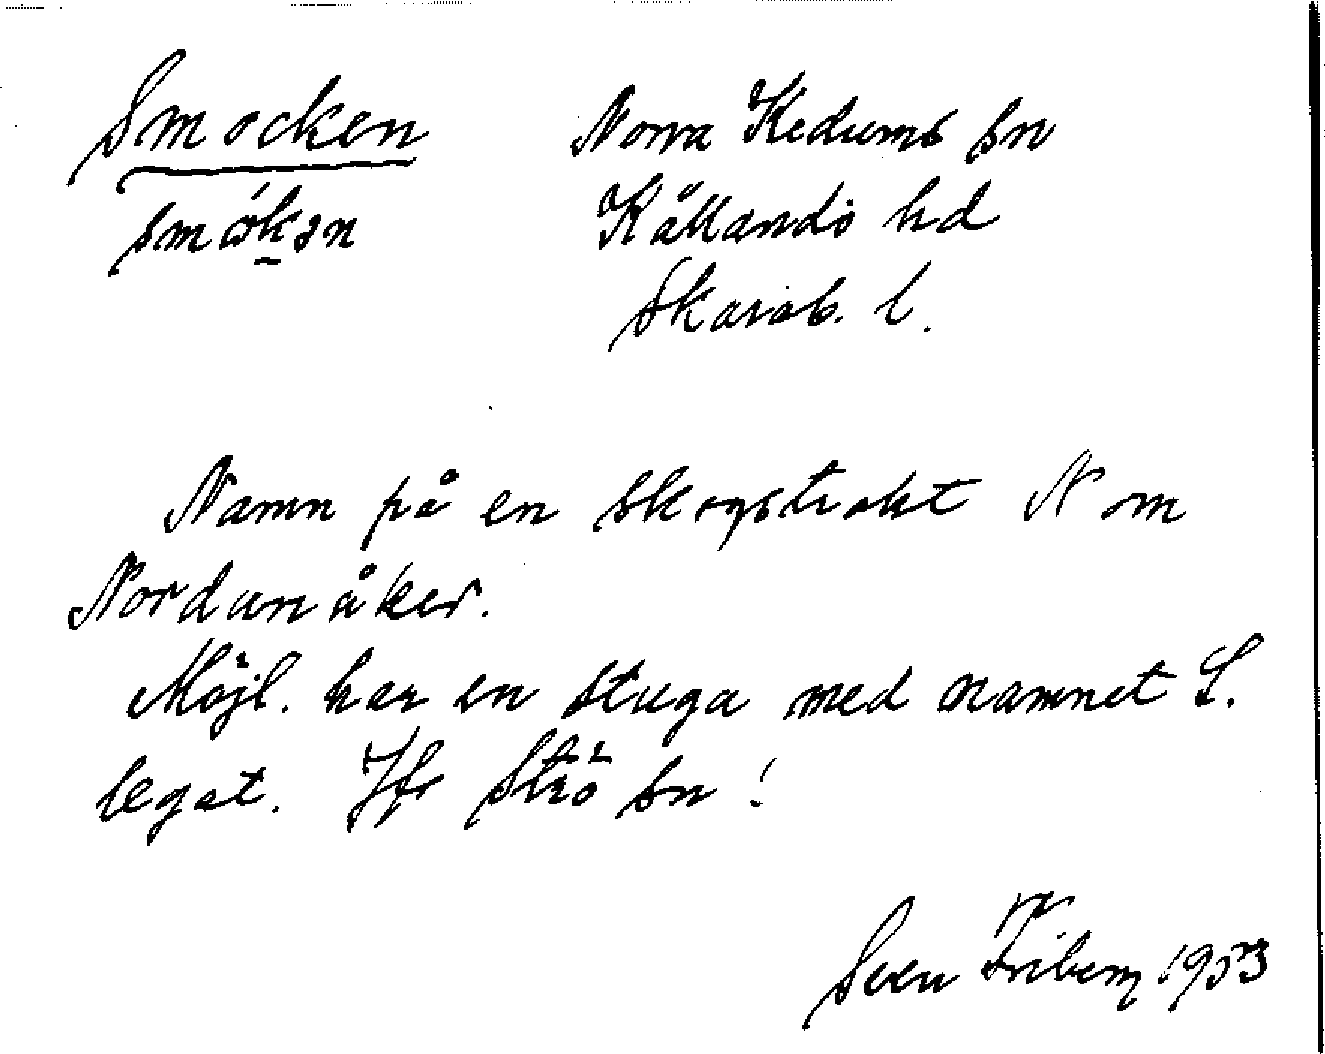 Smocken
smókən
Norra Kedums sn
Kållands hd
Skarab. l.
Namn på en skogstrakt N om
Nordanåker.
Möjl. har en stuga med namnet S.
legat. Jfr Strö sn!
Sven Friberg 1953